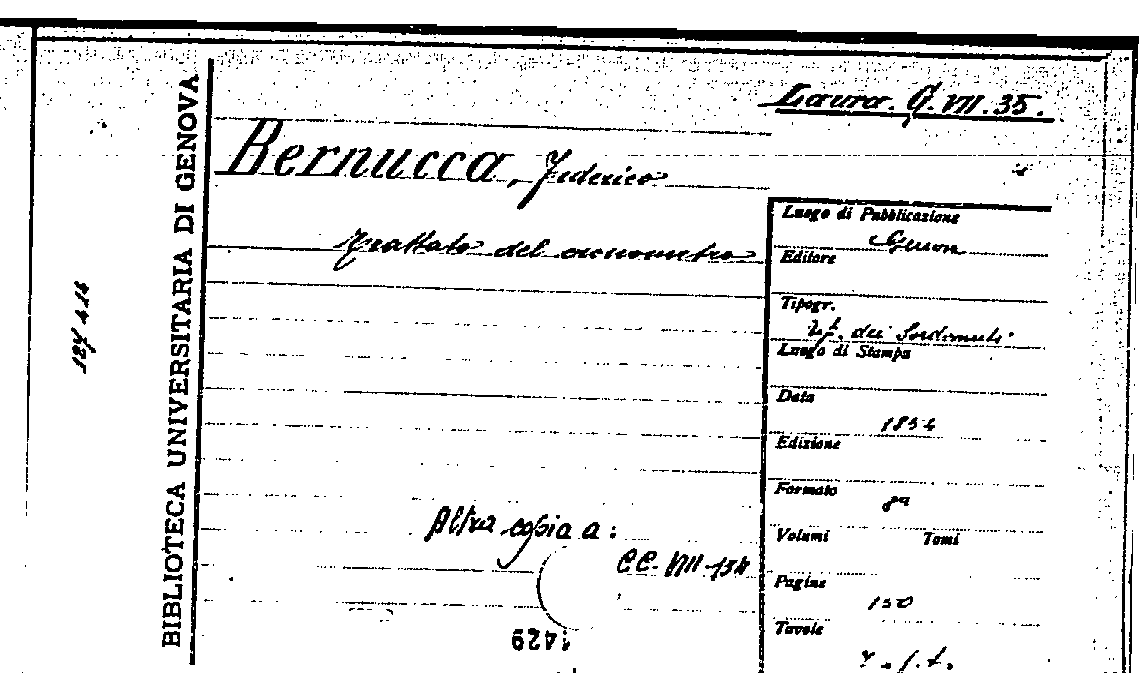 Laura. G. VII. 35.
Bernucca, Federico
Trattato del cronometro
BIBLIOTECA UNIVERSITARIA DI GENOVA
Luogo di Pubblicazione
Genova
Editore
Tipogr.
dei Sordomuti
Luogo di Stampa
Data
Edizione
Formato
8º
Volumi Tomi
Pagine
150
Tavole
Altra copia a:
CC. VIII
1429